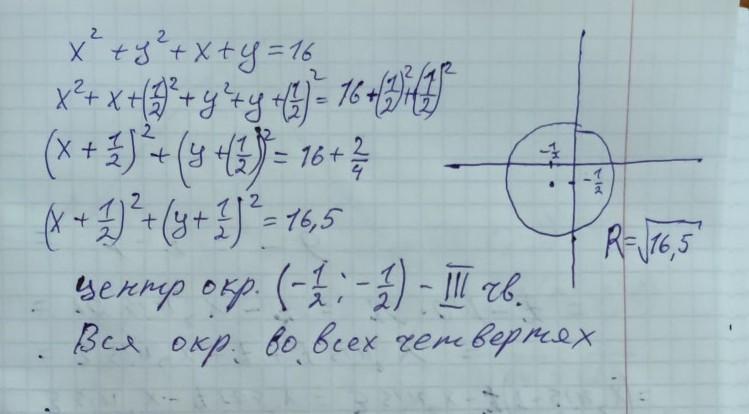 x² + y² + x + y = 16
x² + x + (1/2)² + y² + y + (1/2)² = 16 + (1/2)² + (1/2)²
(x + 1/2)² + (y + (1/2))² = 16 + 2/4
(x + 1/2)² + (y + 1/2)² = 16,5
центр окр. (-1/2; -1/2) - III чв.
Вся окр. во всех четвертях
-1/2
-1/2
R = √16,5